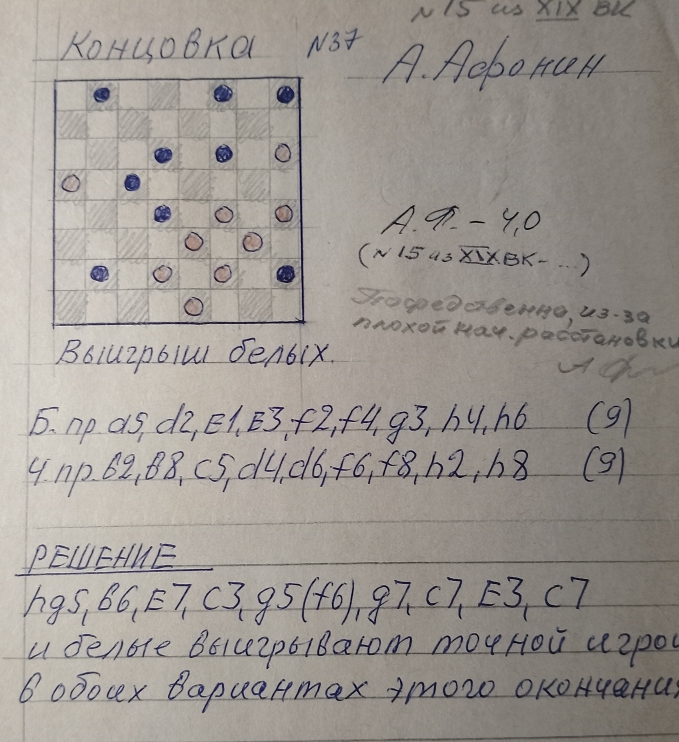 №15 из XIX ВК
Концовка №37
А. Афонин
А.Ф. – 4,0
(№15 из XIX ВК - ...)
Посредственно, из-за
плохой нач. расстановки
Выигрыш белых.
Б. пр. а5, d2, E1, E3, f2, f4, g3, h4, h6 (9)
Ч. пр. в2, в8, с5, d4, d6, f6, f8, h2, h8 (9)
РЕШЕНИЕ
hg5, в6, E7, C3, g5 (f6), g7, c7, E3, C7
и белые выигрывают точной игрой
в обоих вариантах этого окончания